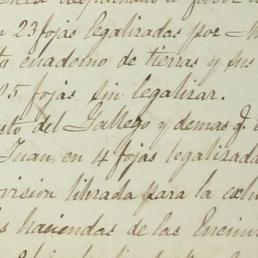 n 23 fojas legalizadas por M
cuaderno de tierras y sus
25 fojas sin legalizar.
sto del Gallego y demas q.
Juan, en 4 fojas legalizada
ovision librada para la
s haciendas de las Encin